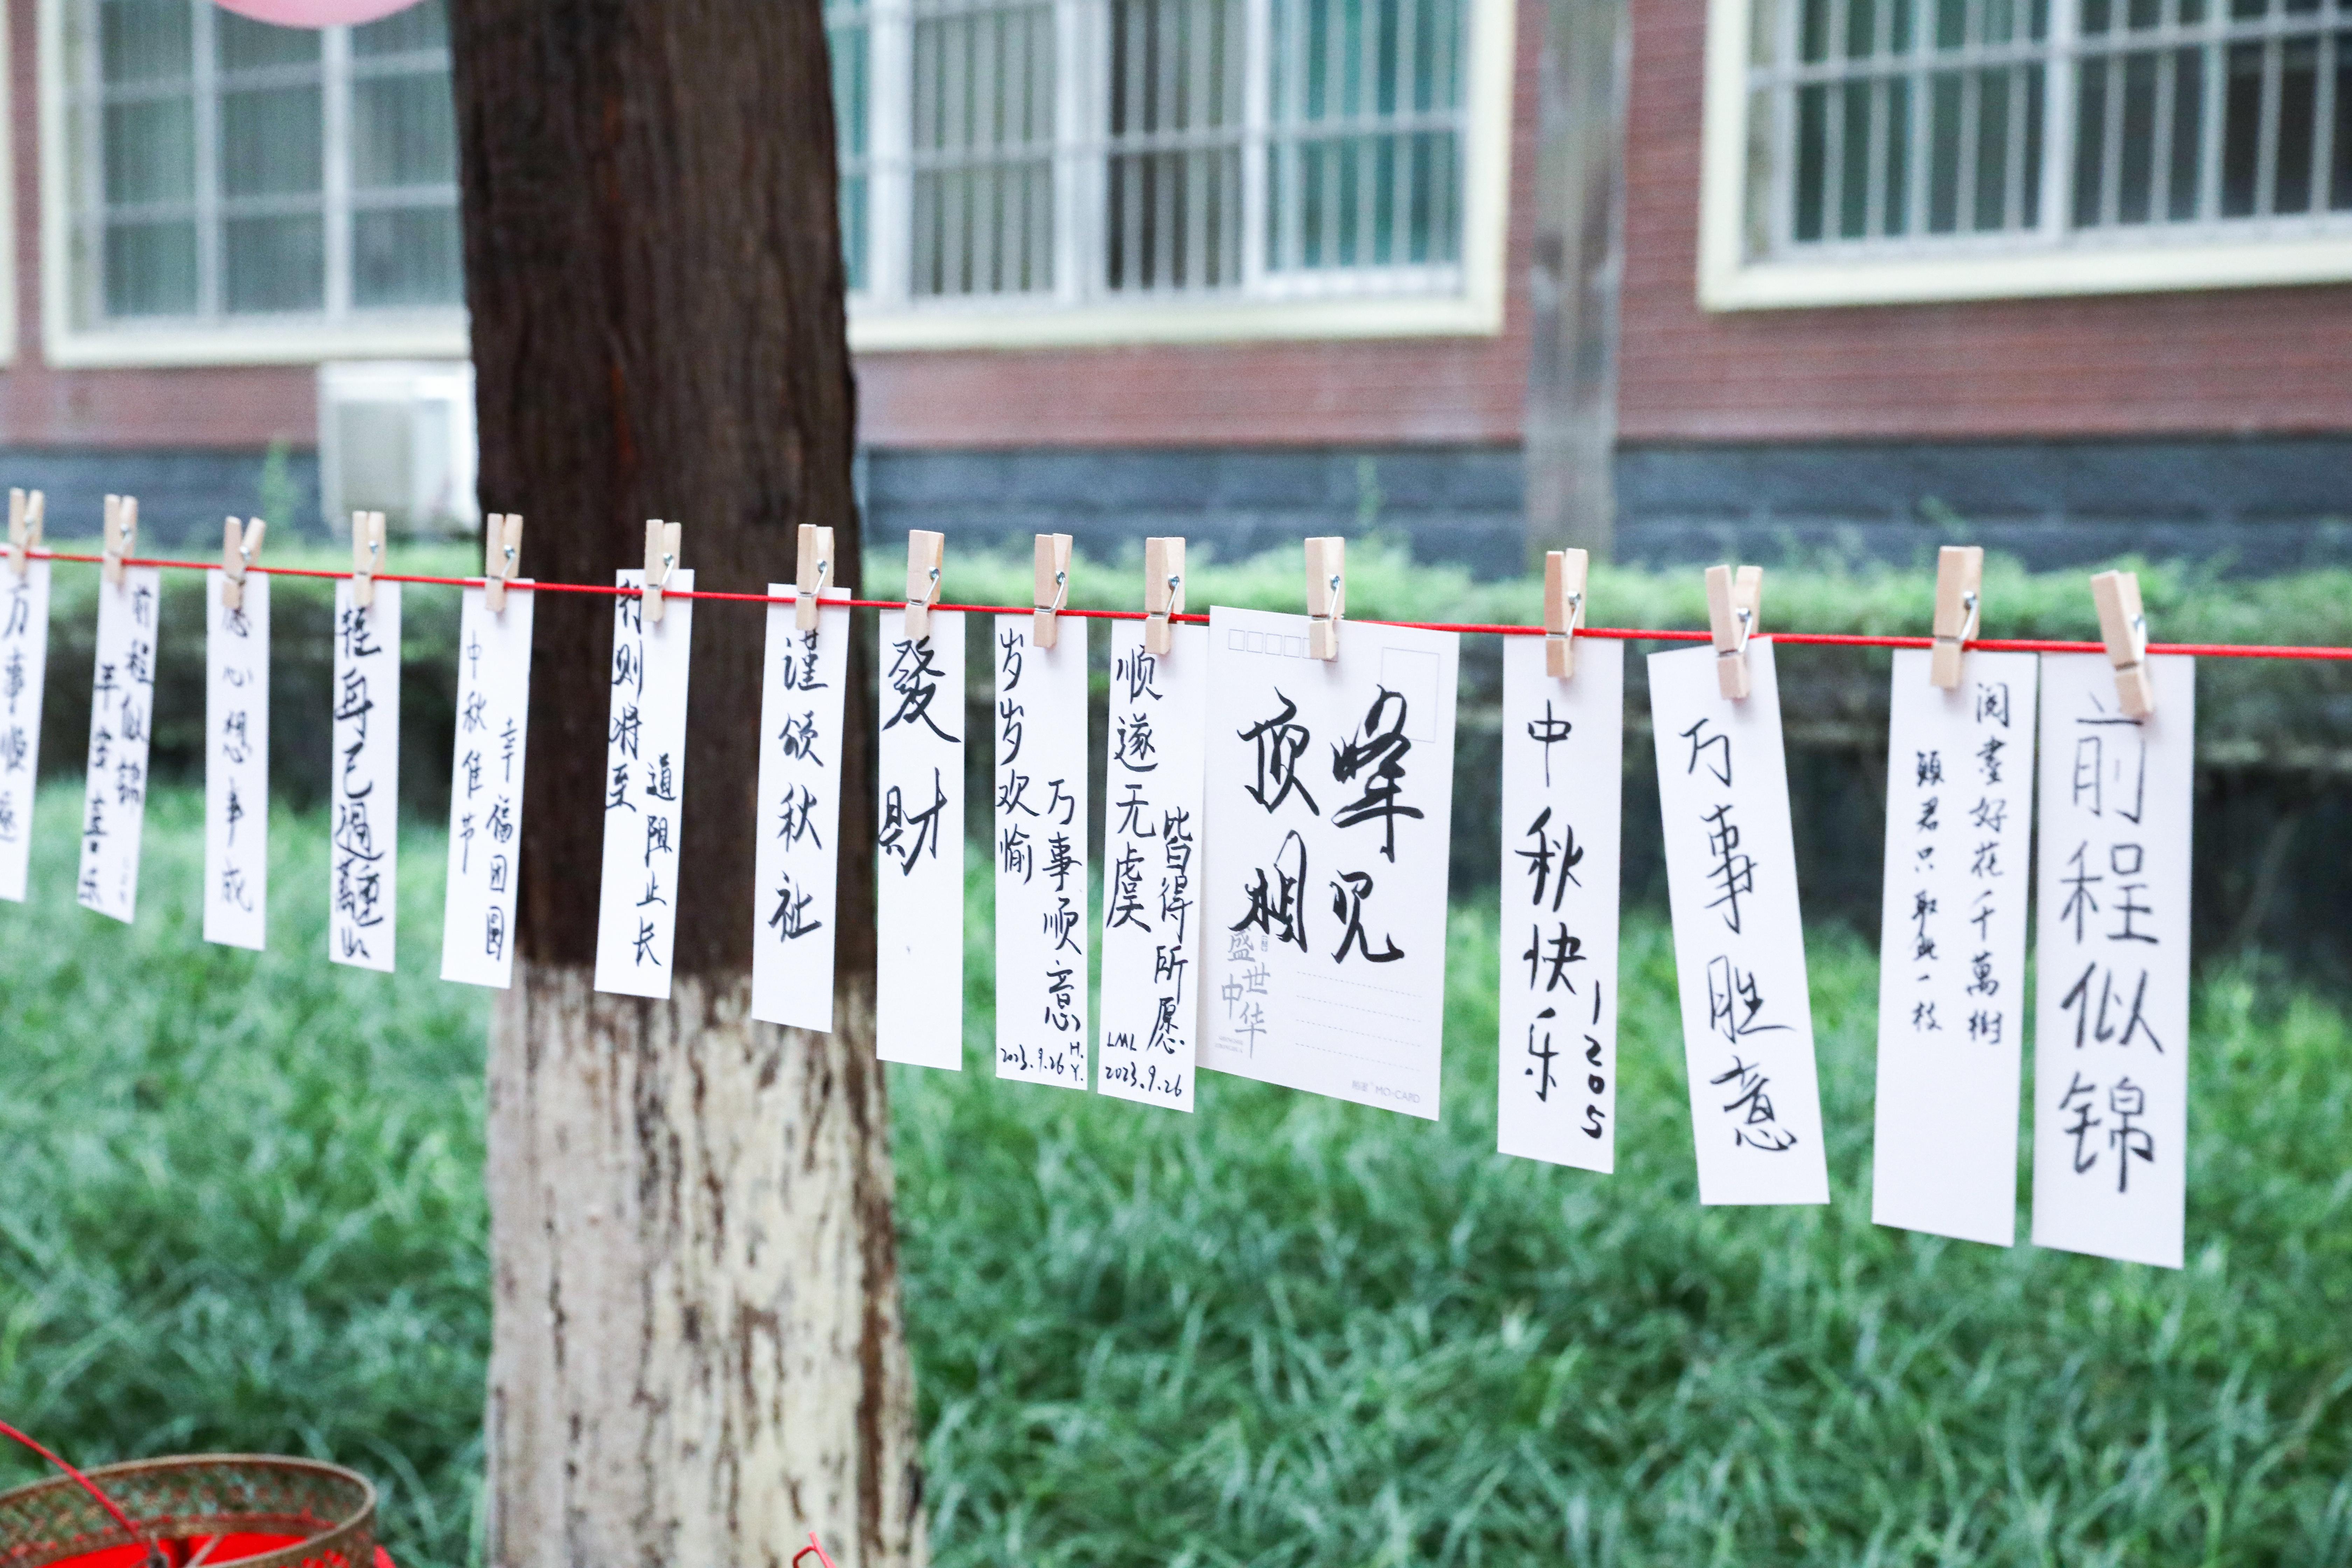 万事顺遂
前程似锦
平安喜乐
心想事成
轻舟已过萬重山
中秋佳节
幸福团圆
行则将至
道阻且长
谨颂秋祉
發财
岁岁欢愉
万事顺意
2023.9.26
H.Y.
顺遂无虞
皆得所愿
LML
2023.9.26
顶峰
相见
盛世
中华
MO-CARD
中秋快乐
1205
万事胜意
阅盡好花千萬樹
願君只取此一枝
前程似锦